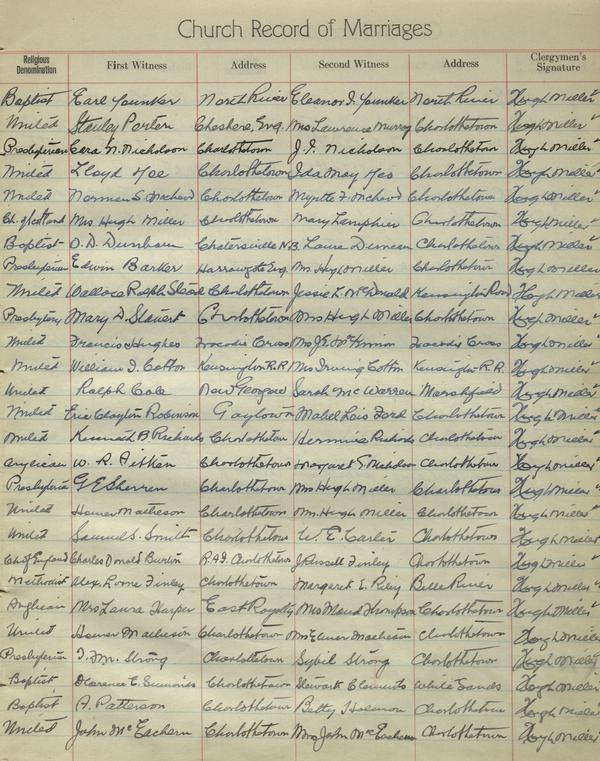 Church Record of Marriages
Religious Denomination First Witness Address Second Witness Address Clergymen's Signature
Baptist Earl Younker North River Eleanor I. Younker North River Hugh Miller
United Stanley Porter Cheshere, Eng. Mrs Lawrence Murray Charlottetown Hugh Miller
Presbyterian Cera N. Nicholson Charlottetown J. I. Nicholson Charlottetown Hugh Miller
United Lloyd Charlottetown Ida May Charlottetown Hugh Miller
United Norman S. Charlottetown Myrtle F. Charlottetown Hugh Miller
Ch. of Scotland Mrs Hugh Miller Charlottetown Mary Lamphier Charlottetown Hugh Miller
Baptist O. D. Dunham N.B. Laura Duncan Charlottetown Hugh Miller
Presbyterian Edwin Barker Harrowgate Eng. Mrs Hugh Miller Charlottetown Hugh Miller
United Wallace Ralph Charlottetown Jessie L. McDonald Kensington Road Hugh Miller
Presbytery Mary D. Stewart Charlottetown Mrs Hugh Miller Charlottetown Hugh Miller
United Francis Hughes Tracadie Cross Mrs J. E. McKinnon Tracadie Cross Hugh Miller
United William I. Cotton Kensington R.R. Mrs Irving Cotton Kensington R.R. Hugh Miller
United Ralph Cole New Sarah McWarren Marshfield Hugh Miller
United Eric Clayton Robinson Gaytown Mabel Lois Ford Charlottetown Hugh Miller
United Kenneth B Richards Charlottetown Hermine Richards Charlottetown Hugh Miller
Anglican W. R. Aitken Charlottetown Margaret S. Nicholson Charlottetown Hugh Miller
Presbyterian G. E. Sherren Charlottetown Mrs Hugh Miller Charlottetown Hugh Miller
United Homer Matheson Charlottetown Mrs. Hugh Miller Charlottetown Hugh Miller
United Samuel S. Smith Charlottetown W. E. Carter Charlottetown Hugh Miller
Ch. of England Charles Donald Burton R.A.F. Charlottetown J. Russell Finley Charlottetown Hugh Miller
Methodist Alex. Rorne Finley Charlottetown Margaret E. Riley Belle River Hugh Miller
Anglican Mrs Laura Harper East Royalty Mrs Maud Thompson Charlottetown Hugh Miller
United Homer Matheson Charlottetown Mrs Elmer Matheson Charlottetown Hugh Miller
Presbyterian I. Strong Charlottetown Sybil Strong Charlottetown Hugh Miller
Baptist Clarence E. Simmonds Charlottetown Stewart Clements White Sands Hugh Miller
Baptist A. Patterson Charlottetown Betty Charlottetown Hugh Miller
United John McEachern Charlottetown Mrs John McEachern Charlottetown Hugh Miller